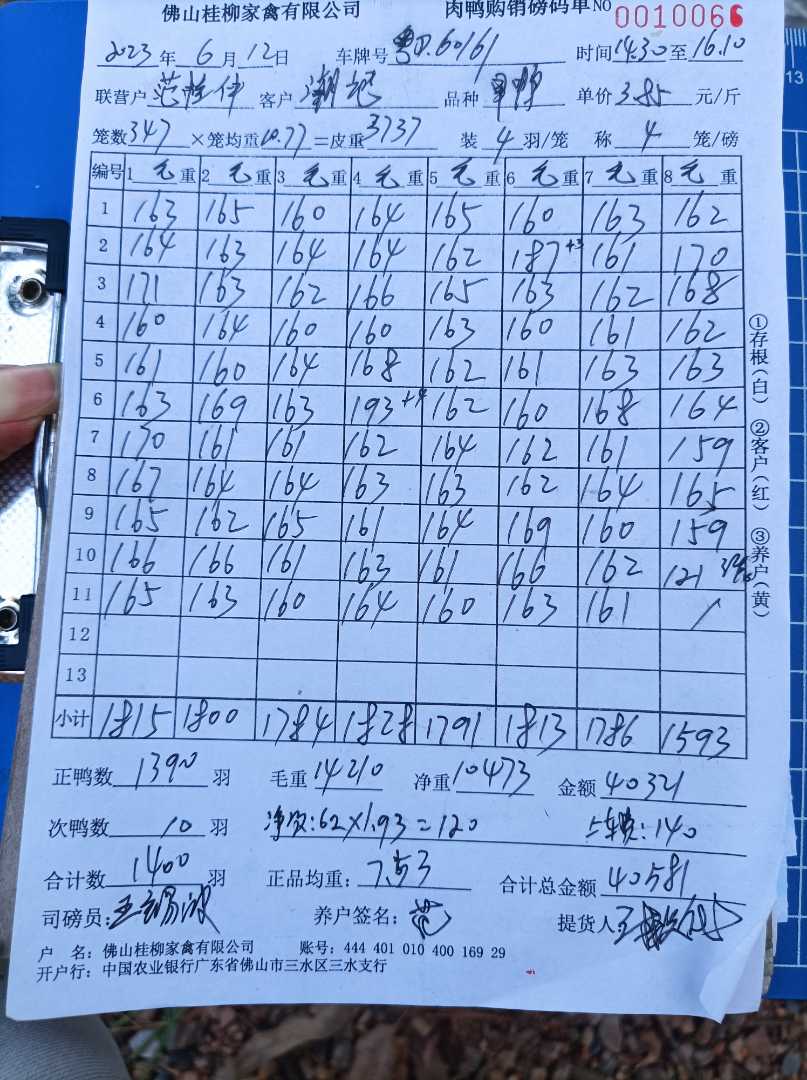 佛山桂柳家禽有限公司 肉鸭购销磅码单 NO 0010066
2023年6月12日 车牌号 粤D.60161 时间14:30至16:10
联营户 范 客户 品种 单价3.85元/斤
笼数347×笼均重10.77=皮重3737 装4羽/笼 称4笼/磅
编号 1毛重 2毛重 3毛重 4毛重 5毛重 6毛重 7毛重 8毛重
1 163 165 160 164 165 160 163 162
2 164 163 164 164 162 187+3 161 170
3 171 163 162 166 165 163 162 168
4 160 164 160 160 163 160 161 162
5 161 160 164 168 162 161 163 163
6 163 169 163 193+4 162 160 168 164
7 170 161 161 162 164 162 161 159
8 167 164 164 163 163 162 164 165
9 165 162 165 161 164 169 160 159
10 166 166 161 163 161 166 162 121
11 165 163 160 164 160 163 161 /
12
13
小计 1815 1800 1784 1828 1791 1813 1786 1593
正鸭数1390羽 毛重14210 净重10473 金额40321
次鸭数10羽 净次:62×1.93=120 上车费:140
合计数1400羽 正品均重:7.53 合计总金额40581
司磅员: 养户签名:范 提货人
户 名:佛山桂柳家禽有限公司 账号:444 401 010 400 169 29
开户行:中国农业银行广东省佛山市三水区三水支行
①存根(白) ②客户(红) ③养户(黄)
13